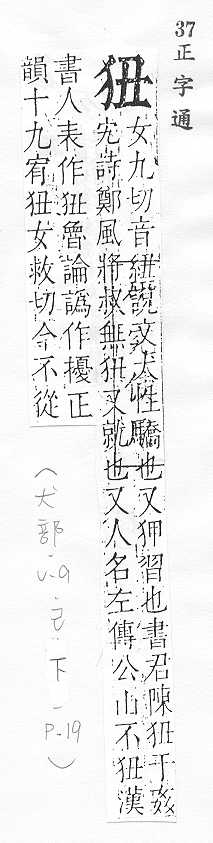 37 正字通
狃
女九切音紐說文犬性驕也又狎習也書君陳狃于姦
宄詩鄭風將叔無狃又就也又人名左傳公山不狃漢
書人表作狃魯論譌作擾正
韻十九宥狃女救切今不從
(犬部.v.9.己.下.P-19)